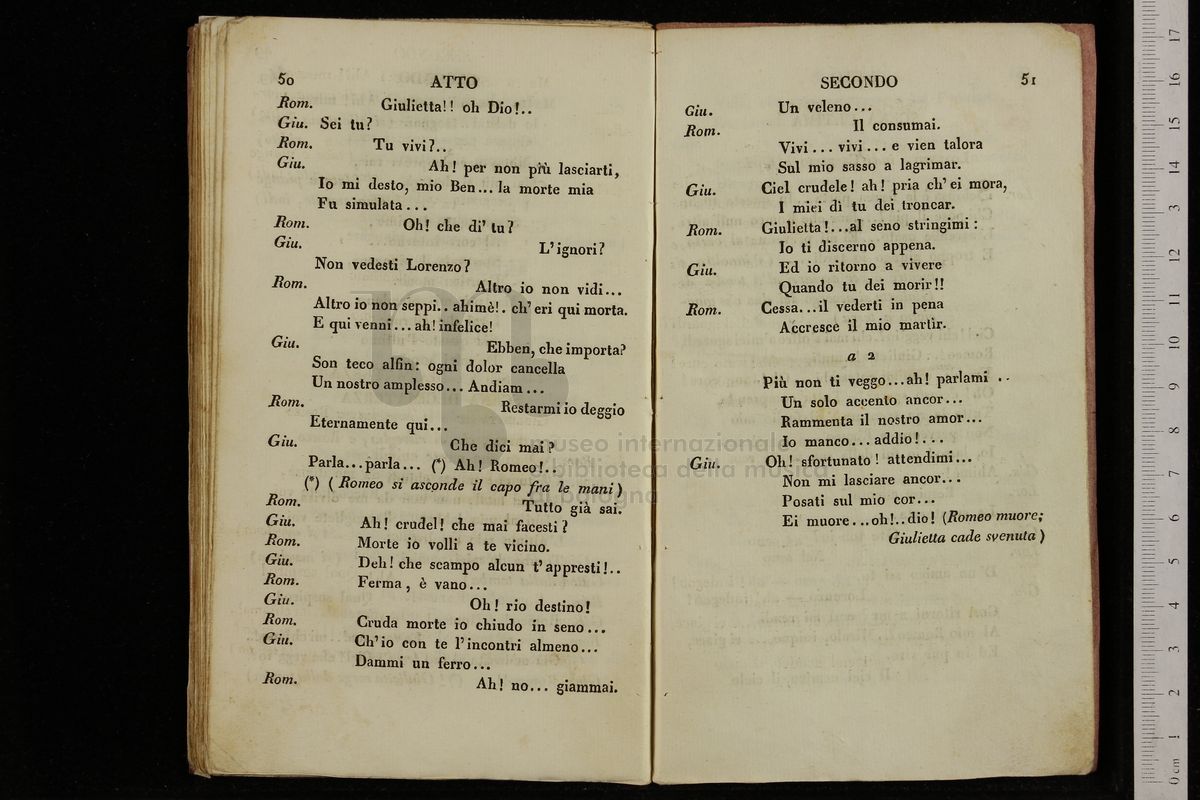 50 ATTO
Rom. Giulietta!! oh Dio!..
Giu. Sei tu?
Rom. Tu vivi?..
Giu. Ah! per non più lasciarti,
Io mi desto, mio Ben... la morte mia
Fu simulata...
Rom. Oh! che di' tu?
Giu. L'ignori?
Non vedesti Lorenzo?
Rom. Altro io non vidi...
Altro io non seppi.. ahimè!. ch'eri qui morta.
E qui venni... ah! infelice!
Giu. Ebben, che importa?
Son teco alfin: ogni dolor cancella
Un nostro amplesso... Andiam...
Rom. Restarmi io deggio
Eternamente qui...
Giu. Che dici mai?
Parla...parla... (*) Ah! Romeo!..
(*) (Romeo si asconde il capo fra le mani)
Rom. Tutto già sai.
Giu. Ah! crudel! che mai facesti?
Rom. Morte io volli a te vicino.
Giu. Deh! che scampo alcun t'appresti!..
Rom. Ferma, è vano...
Giu. Oh! rio destino!
Rom. Cruda morte io chiudo in seno...
Giu. Ch'io con te l'incontri almeno...
Dammi un ferro...
Rom. Ah! no... giammai.
SECONDO 51
Giu. Un veleno...
Rom. Il consumai.
Vivi... vivi... e vien talora
Sul mio sasso a lagrimar.
Giu. Ciel crudele! ah! pria ch'ei mora,
I miei dì tu dei troncar.
Rom. Giulietta!...al seno stringimi:
Io ti discerno appena.
Giu. Ed io ritorno a vivere
Quando tu dei morir!!
Rom. Cessa...il vederti in pena
Accresce il mio martìr.
a 2
Più non ti veggo...ah! parlami ..
Un solo accento ancor...
Rammenta il nostro amor...
Io manco... addio!...
Giu. Oh! sfortunato! attendimi...
Non mi lasciare ancor...
Posati sul mio cor...
Ei muore...oh!..dio! (Romeo muore;
Giulietta cade svenuta)
museo internazionale
e biblioteca della musica
di bologna
0 cm 1 2 3 4 5 6 7 8 9 10 11 12 13 14 15 16 17